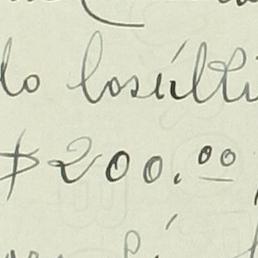 lo los últi
$200.00